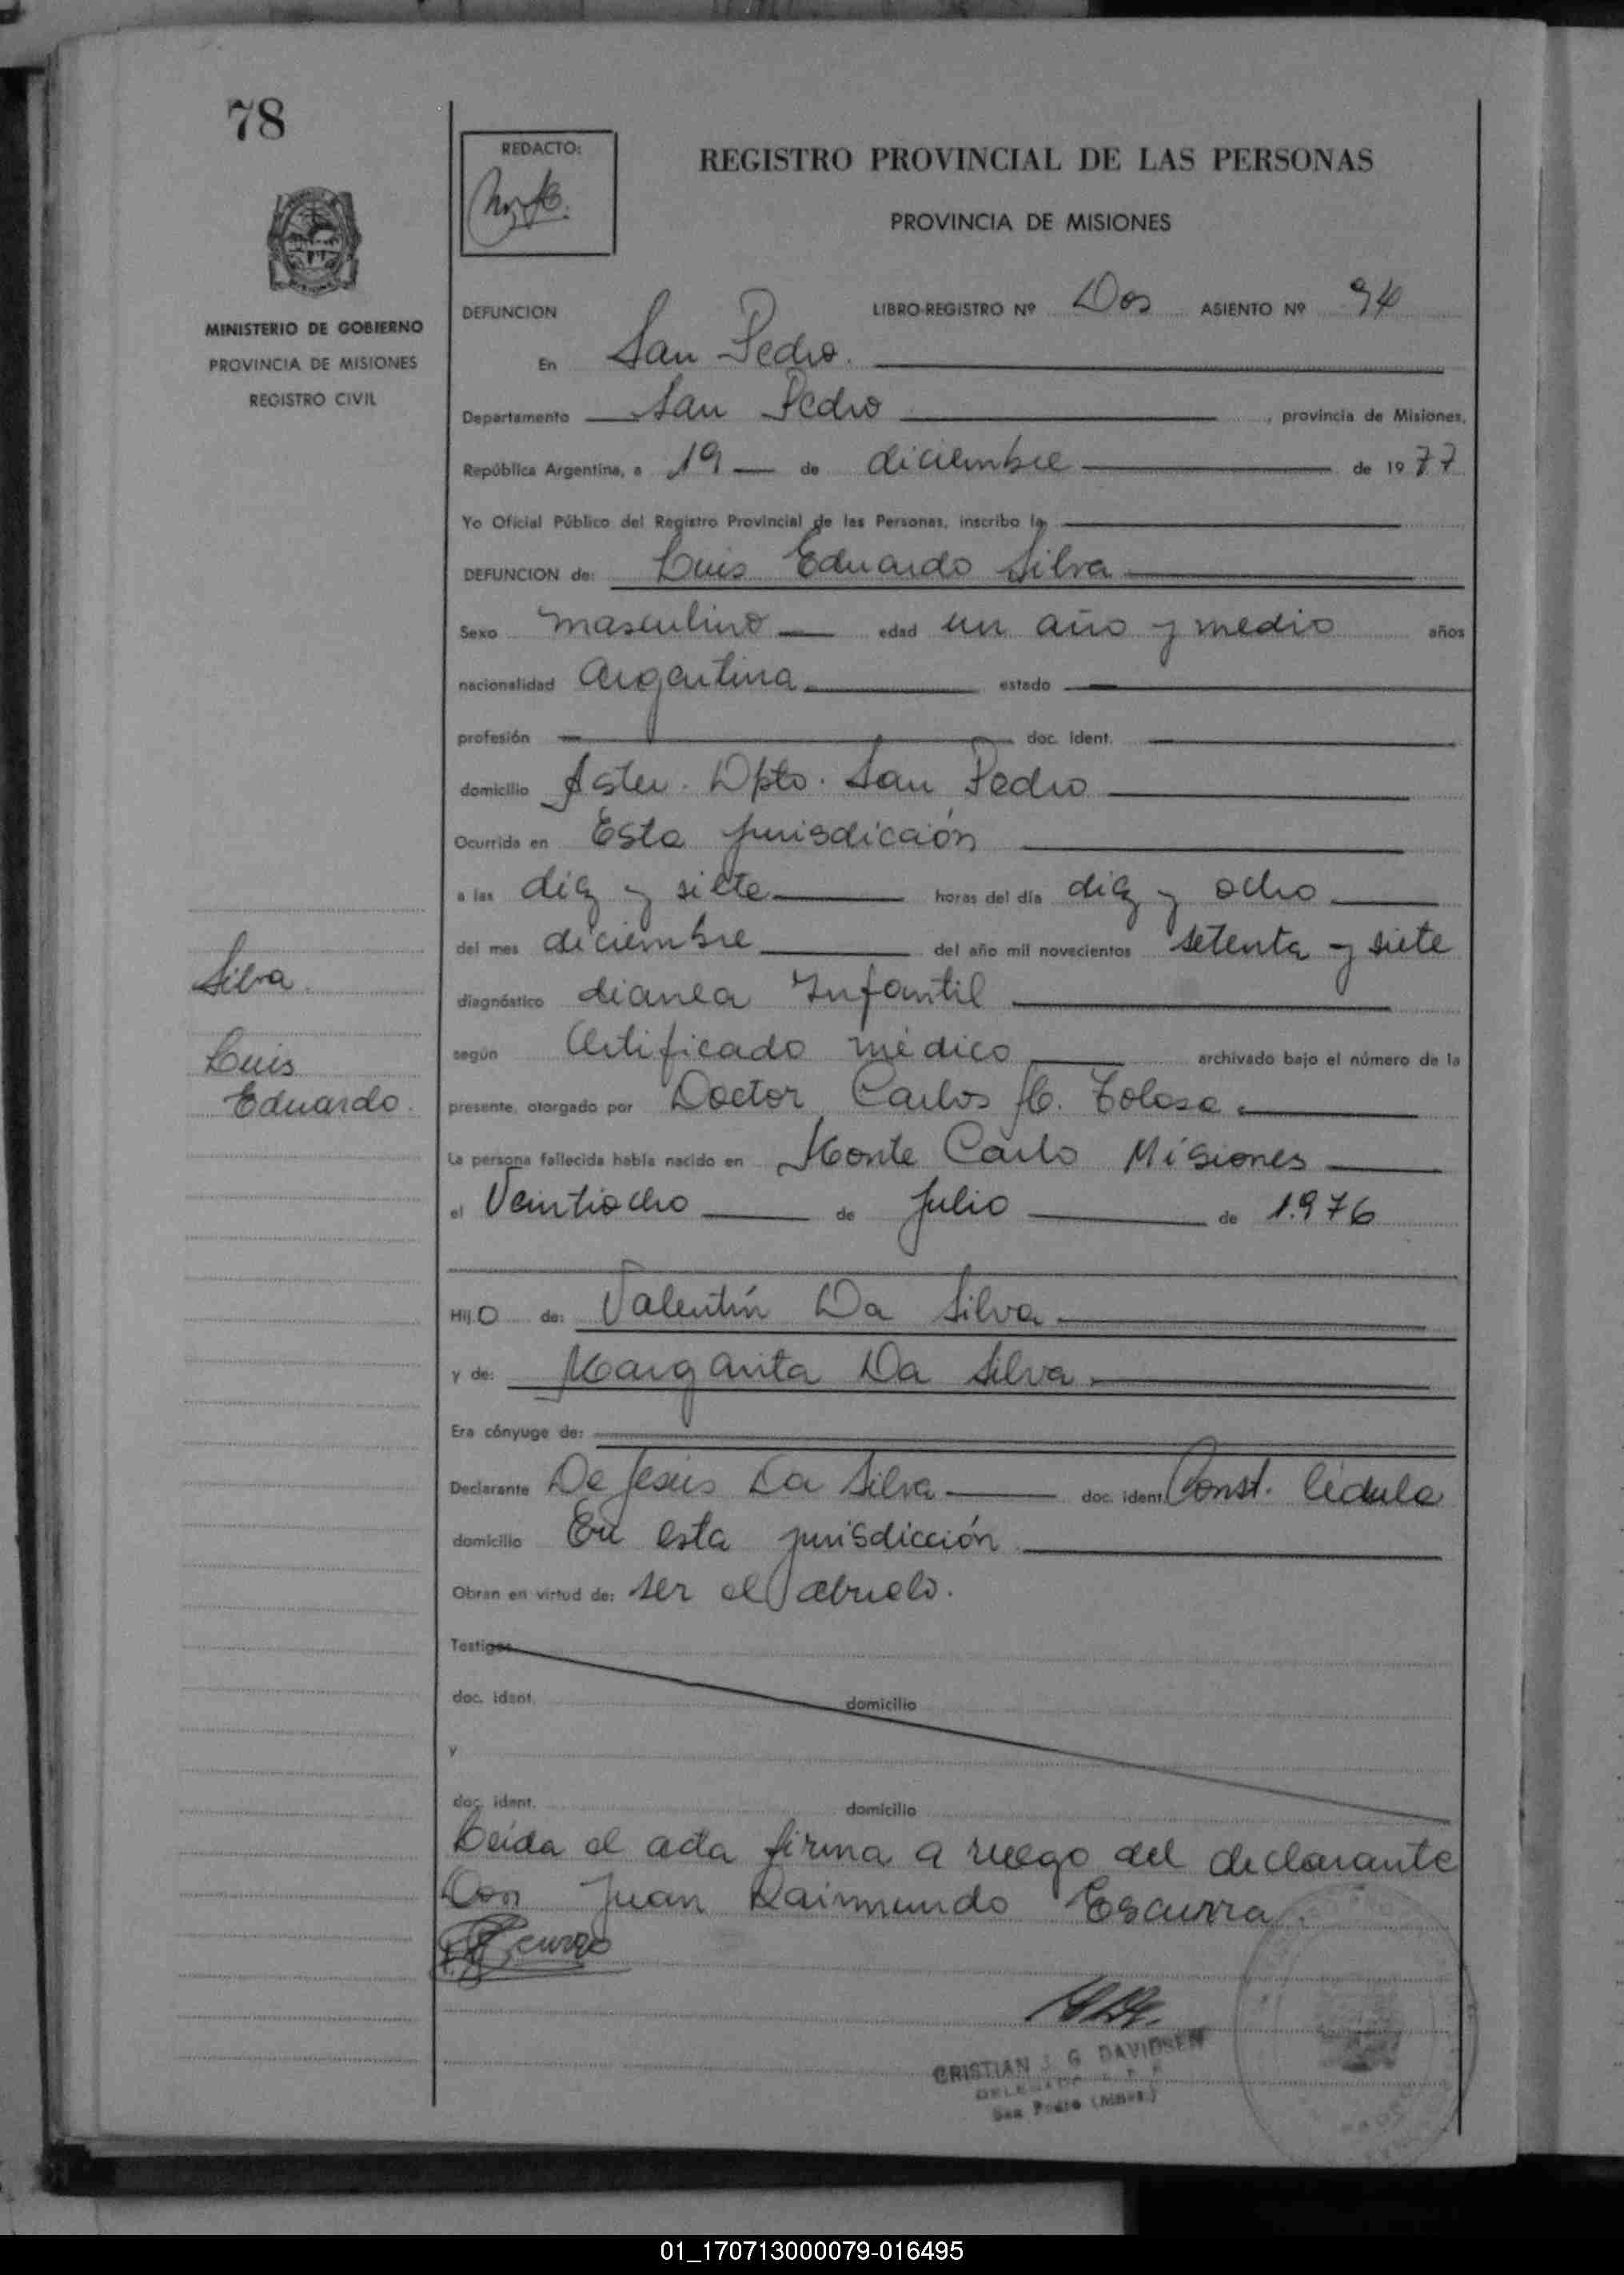 78
REDACTO:
REGISTRO PROVINCIAL DE LAS PERSONAS
PROVINCIA DE MISIONES
MINISTERIO DE GOBIERNO
PROVINCIA DE MISIONES
REGISTRO CIVIL
DEFUNCION LIBRO-REGISTRO Nº Dos ASIENTO Nº 94
En San Pedro.
Departamento San Pedro, provincia de Misiones,
República Argentina, a 19 de diciembre de 1977
Yo Oficial Público del Registro Provincial de las Personas, inscribo la
DEFUNCION de: Luis Eduardo Silva
Sexo masculino edad un año y medio años
nacionalidad argentina estado
profesión doc. ident.
domicilio Dpto. San Pedro
Ocurrida en Esta jurisdicción
a las diez y siete horas del día diez y ocho
del mes diciembre del año mil novecientos setenta y siete
diagnóstico diarrea Infantil
según Certificado médico archivado bajo el número de la
presente, otorgado por Doctor Carlos H. Tolosa.
La persona fallecida había nacido en Monte Carlo Misiones
el Veintiocho de Julio de 1.976
Hijo de: Valentín Da Silva
y de: Margarita Da Silva
Era cónyuge de:
Declarante De Jesús Da Silva doc. ident. Const. Cédula
domicilio En esta jurisdicción
Obran en virtud de: ser el abuelo.
Testigos
doc. ident. domicilio
y
doc. ident. domicilio
Leída el acta firma a ruego del declarante
Don Juan Raimundo Escurra.
Silva
Luis
Eduardo.
CRISTIAN J. G. DAVIDSEN
San Pedro (Mnes.)
01_170713000079-016495